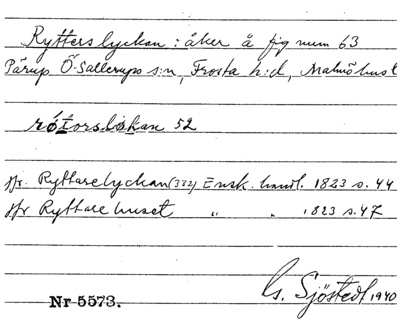 Rytterslyckan: åker å fig num 63
Pårup Ö. Sallerups s:n, Frosta h:d, Malmöhus l
rótorsløkan 52
jfr. Ryttarelyckan (332) Ensk. handl. 1823 s. 44
jfr Ryttarehuset " " 1823 s. 47
G. Sjöstedt 1940
Nr 5573.